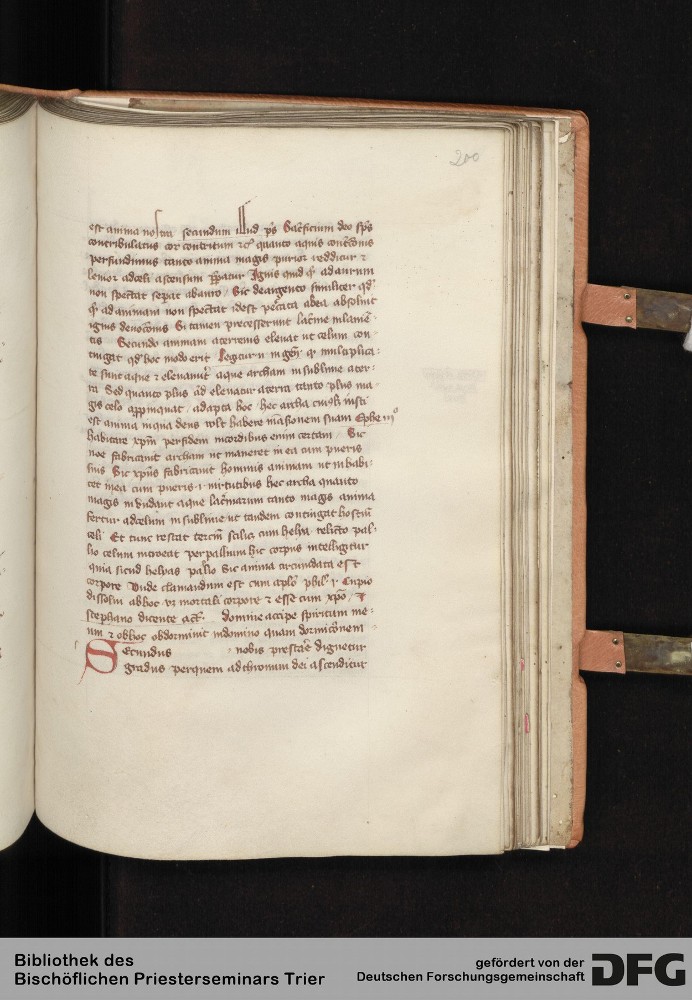 200
est anima nostra secundum illud ps Sacrificium deo sps
contribulatus cor contritum &c quanto aquis contconis
perfundimus tanto anima magis purior redditur et
levior ad celi ascensum ppatur Ignis quid q ad aurum
non spectat sepat ab auro / Sic de argento similiter qd
q ad animam non spectat idest pctata ab ea absoluit
ignis deuoconis Si tamen precesserunt lacrime in lamē-
tis Secundo animam a terrenis eleuat ut celum con-
tingat qd hoc modo erit Legitur in gen q multiplica-
te sunt aque et eleuauerūt aque archam in sublime a ter-
ra Sed quanto plus ad eleuatur a terra tanto plus ma-
gis celo appinquat / adapta hoc / hec archa cuiuslt iusti
est anima in qua deus volt habere māsionem suam Ephe iii°
habitare xpm per fidem in cordibus enim certam / Sic
noe fabricauit archam ut maneret in ea cum pueris
suis Sic xpus fabricauit hominis animam ut inhabi-
tet in ea cum pueris .i. virtutibus hec archa quanto
magis inundant aque lacrimarum tanto magis anima
fertur ad celum in sublime ut tandem contingat hostiū
celi Et tunc restat tercm scilic cum helya relicto pal-
lio celum introeat per pallium hic corpus intelligitur
quia sicud helyas palio Sic anima circumdata est
corpore Unde clamandum est cum aplo phil i Cupio
dissolui ab hoc vz mortali corpore et esse cum xpo / Et
stephano dicente act domine accipe spiritum me-
um et ob hoc obdormiuit in domino quam dormicōnem
Secundus nobis prestare dignetur
gradus per quem ad thronum dei ascenditur
Bibliothek des
Bischöflichen Priesterseminars Trier
gefördert von der
Deutschen Forschungsgemeinschaft
DFG